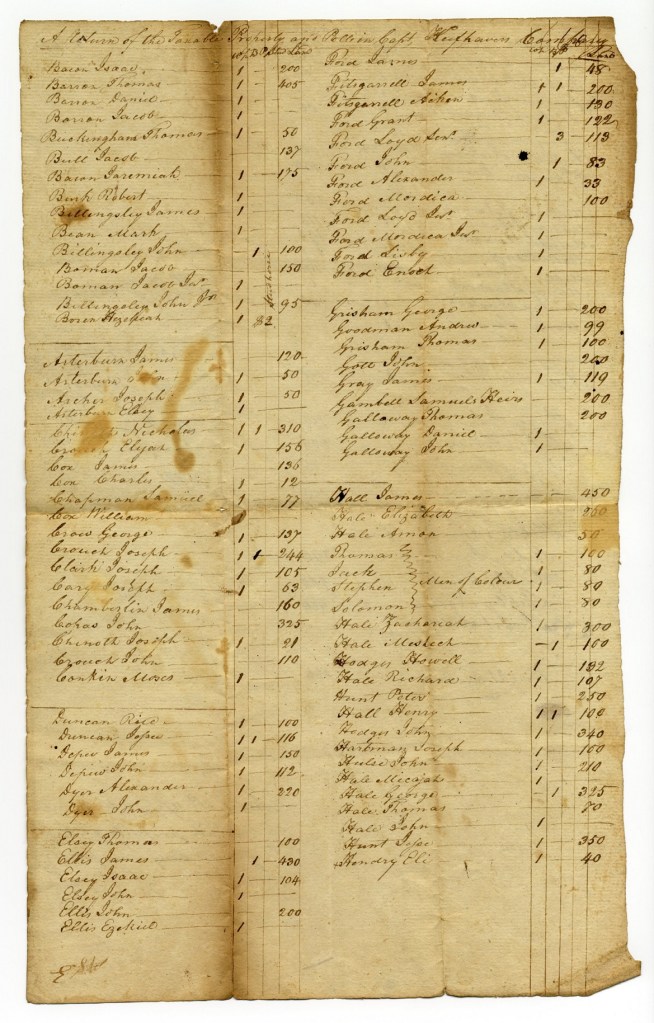 A Return of the Taxable Property and Polls in Capt. Company
Bacon Isaac 1 200
Barron Thomas 1 405
Barron Daniel 1
Barron Jacob 1
Buckingham Thomas 1 50
Bull Jacob 137
Bacon Jaremiah 1 175
Burk Robert 1
Billingsley James 1
Bean Mark 1
Billingsley John 1 100
Boman Jacob 150
Boman Jacob Jur. 1
Billingsley John Jr 1 95
Boren Hezekiah 1
Arterburn James 120
Arterburn John 1 50
Archer Joseph 1 50
Arterburn Elsey 1
Nicholas 1 1 310
Elijah 1 156
Cox James 136
Cox Charles 1 12
Chapman Samuel 1 77
Cox William
Crow George 1 137
Crouch Joseph 1 244
Clark Joseph 1 105
Cary Joseph 1 63
Chamberlin James 160
John 325
Chinoth Joseph 1 21
Crouch John 110
Conkin Moses 1
Duncan Rice 1 100
Duncan Jesse 1 1 116
Depew James 1 150
Depew John 1 112
Dyer Alexander 1 220
Dyer John 1
Elsey Thomas 100
Ellis James 1 430
Elsey Isaac 1 104
Elsey John 1
Ellis John 200
Ellis Ezekiel 1
Ford James 1 48
Fitsgarrell James 1 1 200
Fitsgarrell Aiken 1 130
Ford Grant 1 122
Ford Loyd Senr. 3 113
Ford John 1 83
Ford Alexander 1 33
Ford Mordica 100
Ford Loyd Jur. 1
Ford Mordica Jur. 1
Ford Lisby 1
Ford Enoch 1
Grisham George 1 200
Goodman Andrew 1 99
Grisham Thomas 1 100
Gott John 200
Gray James 1 119
Gambell Samuels Heirs 200
Gallaway Thomas 200
Galloway Daniel 1
Galloway John 1
Hall James 450
Hale Elizabeth
Hale Amon 50
Thomas 1 100
Jack 1 80
Stephen Men of Colour 1 80
Solomon 1 80
Hale Zachariah 1 300
Hale Meshech 1 100
Hodges Howell 1 132
Hale Richard 1 107
Hunt Peter 1 250
Hall Henry 1 1 100
Hodges John 1 340
Hartman Joseph 1 160
Hulse John 1 210
Hale Micajah 1
Hale George 1 325
Hale Thomas 70
Hale John 1
Hunt Jesse 1 350
Hendry Eli 1 40